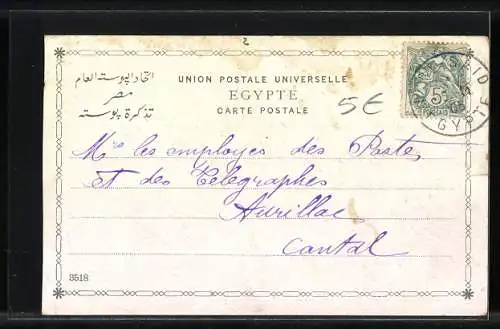 2
اتحاد البوسته العام
مصر
تذكرة بوسته
UNION POSTALE UNIVERSELLE
EGYPTE
CARTE POSTALE
5€
5
EGYPTE
Mrs les employés des Postes
et des Télégraphes
Aurillac
Cantal
3518